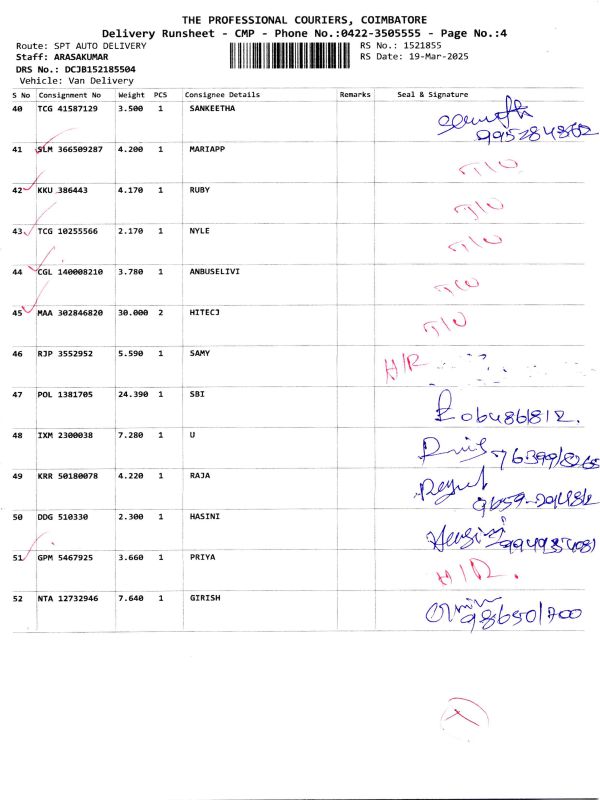 THE PROFESSIONAL COURIERS, COIMBATORE
Delivery Runsheet - CMP - Phone No.:0422-3505555 - Page No.:4
Route: SPT AUTO DELIVERY RS No.: 1521855
Staff: ARASAKUMAR RS Date: 19-Mar-2025
DRS No.: DCJB152185504
Vehicle: Van Delivery
S No Consignment No Weight PCS Consignee Details Remarks Seal & Signature
40 TCG 41587129 3.500 1 SANKEETHA
41 SLM 366509287 4.200 1 MARIAPP
42 KKU 386443 4.170 1 RUBY
43 TCG 10255566 2.170 1 NYLE
44 CGL 140008210 3.780 1 ANBUSELIVI
45 MAA 302846820 30.000 2 HITECJ
46 RJP 3552952 5.590 1 SAMY H/R
47 POL 1381705 24.390 1 SBI
48 IXM 2300038 7.280 1 U
49 KRR 50180078 4.220 1 RAJA
50 DDG 510330 2.300 1 HASINI
51 GPM 5467925 3.660 1 PRIYA H/R.
52 NTA 12732946 7.640 1 GIRISH